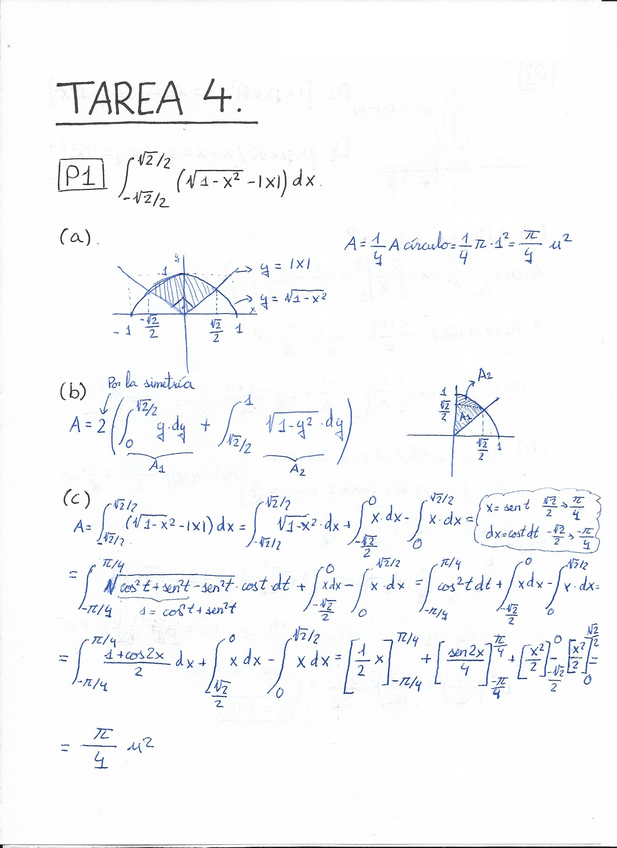 TAREA 4.
P1 ∫_{-√2/2}^{√2/2} (√(1-x²) - |x|) dx.
(a).
A = 1/4 A círculo = 1/4 π·1² = π/4 u²
y
1
y = |x|
y = √(1-x²)
x
-1 -√2/2 √2/2 1
(b) Por la simetría
A = 2 ( ∫_0^{√2/2} y·dy + ∫_{√2/2}^1 √(1-y²)·dy )
A1 A2
A2
1
√2/2
A1
√2/2 1
(c)
A = ∫_{-√2/2}^{√2/2} (√(1-x²) - |x|) dx = ∫_{-√2/2}^{√2/2} √(1-x²)·dx + ∫_{-√2/2}^0 x·dx - ∫_0^{√2/2} x·dx =
x = sen t √2/2 → π/4
dx = cos t dt -√2/2 → -π/4
= ∫_{-π/4}^{π/4} √(cos²t + sen²t - sen²t)·cos t·dt + ∫_{-√2/2}^0 x dx - ∫_0^{√2/2} x·dx = ∫_{-π/4}^{π/4} cos²t dt + ∫_{-√2/2}^0 x dx - ∫_0^{√2/2} x·dx =
1 = cos²t + sen²t
= ∫_{-π/4}^{π/4} (1 + cos 2x)/2 dx + ∫_{√2/2}^0 x dx - ∫_0^{√2/2} x dx = [1/2 x]_{-π/4}^{π/4} + [sen 2x/4]_{-π/4}^{π/4} + [x²/2]_{-√2/2}^0 - [x²/2]_0^{√2/2} =
= π/4 u²